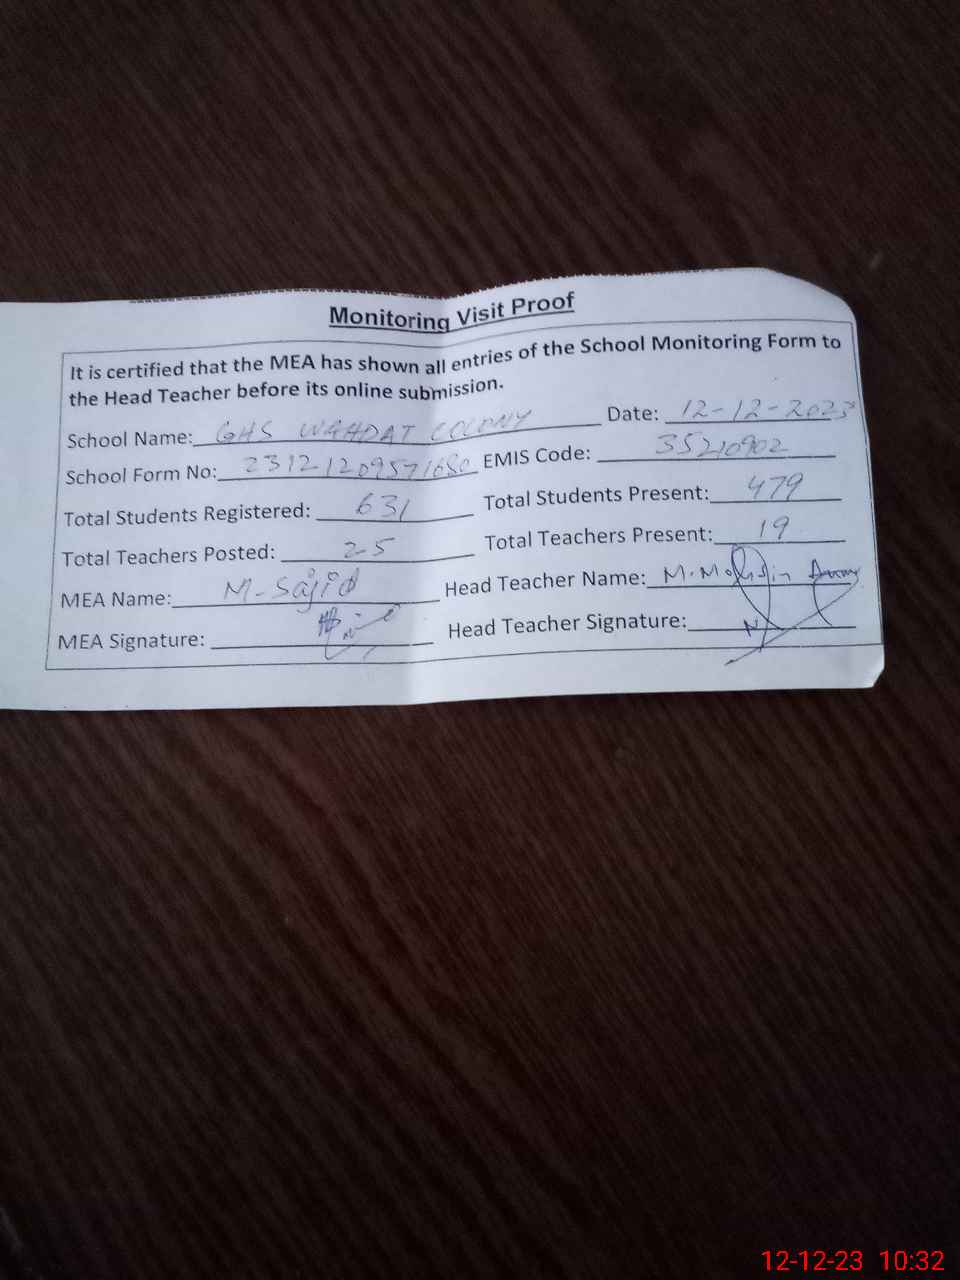 Monitoring Visit Proof
It is certified that the MEA has shown all entries of the School Monitoring Form to
the Head Teacher before its online submission.
School Name: GHS WAHDAT COLONY Date: 12-12-2023
School Form No: 23121209571680 EMIS Code: 35210902
Total Students Registered: 631 Total Students Present: 479
Total Teachers Posted: 25 Total Teachers Present: 19
MEA Name: M-Sajid Head Teacher Name: M.Mohsin
MEA Signature: Head Teacher Signature:
12-12-23 10:32